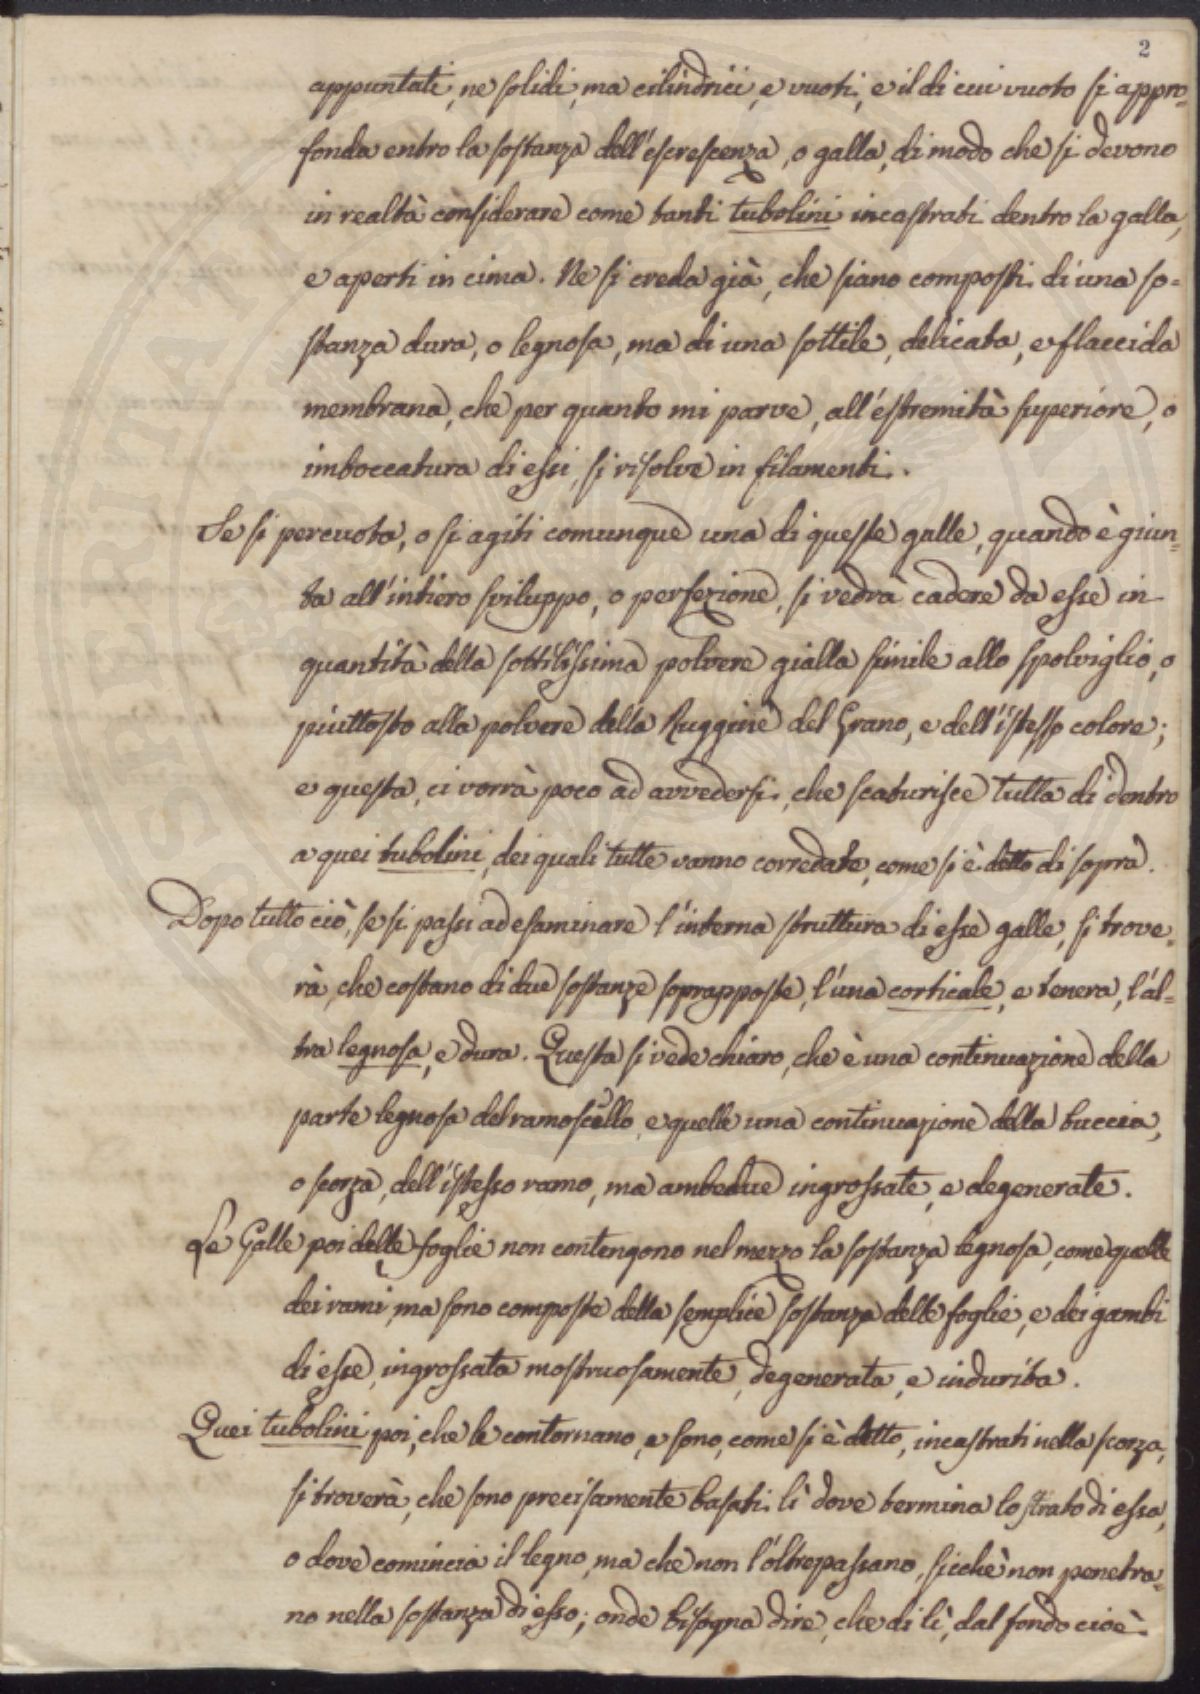 2
appuntati, ne solidi, ma cilindrici, e vuoti, e il di cui vuoto si appro-
fonda entro la sostanza dell'escrescenza, o galla, di modo che si devono
in realtà considerare come tanti tubolini incastrati dentro la galla,
e aperti in cima. Ne si creda già, che siano composti di una so-
stanza dura, o legnosa, ma di una sottile, delicata, e flaccida
membrana, che per quanto mi parve, all'estremità superiore, o
imboccatura di essi, si risolve in filamenti.
Se si percuota, o si agiti comunque una di queste galle, quando è giun-
ta all'intiero sviluppo, o perfezione, si vedrà cadere da esse in
quantità della sottilissima polvere gialla simile allo spolviglio, o
piuttosto alla polvere della Ruggine del Grano, e dell'istesso colore;
e questa, ci vorrà poco ad avvedersi, che scaturisce tutta di dentro
a quei tubolini, dei quali tutte vanno corredate, come si è detto di sopra.
Dopo tutto ciò, se si passi ad esaminare l'interna struttura di esse galle, si trove-
rà, che costano di due sostanze soprapposte, l'una corticale, e tenera, l'al-
tra legnosa, e dura. Questa si vede chiaro, che è una continuazione della
parte legnosa del ramoscello, e quella una continuazione della buccia,
o scorza, dell'istesso ramo, ma ambedue ingrossate, e degenerate.
Le Galle poi delle foglie non contengono nel mezzo la sostanza legnosa, come quelle
dei rami, ma sono composte della semplice sostanza delle foglie, e dei gambi
di esse, ingrossata mostruosamente, degenerata, e indurita.
Quei tubolini poi, che le contornano, e sono, come si è detto, incastrati nella scorza,
si troverà, che sono precisamente basati lì dove termina lo strato di essa,
o dove comincia il legno, ma che non l'oltrepassano, sicchè non penetra-
no nella sostanza di esso; onde bisogna dire, che di lì, dal fondo cioè